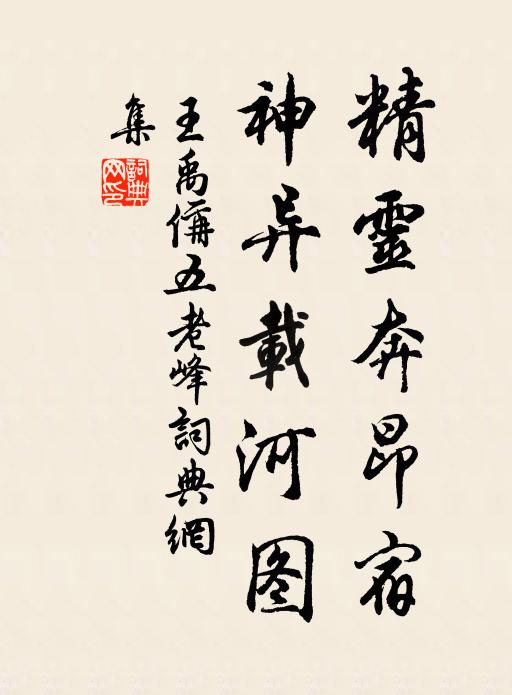 精靈奔昂宿
神异載河图
王禹偁五老峰詞典網
集
詞典
网印